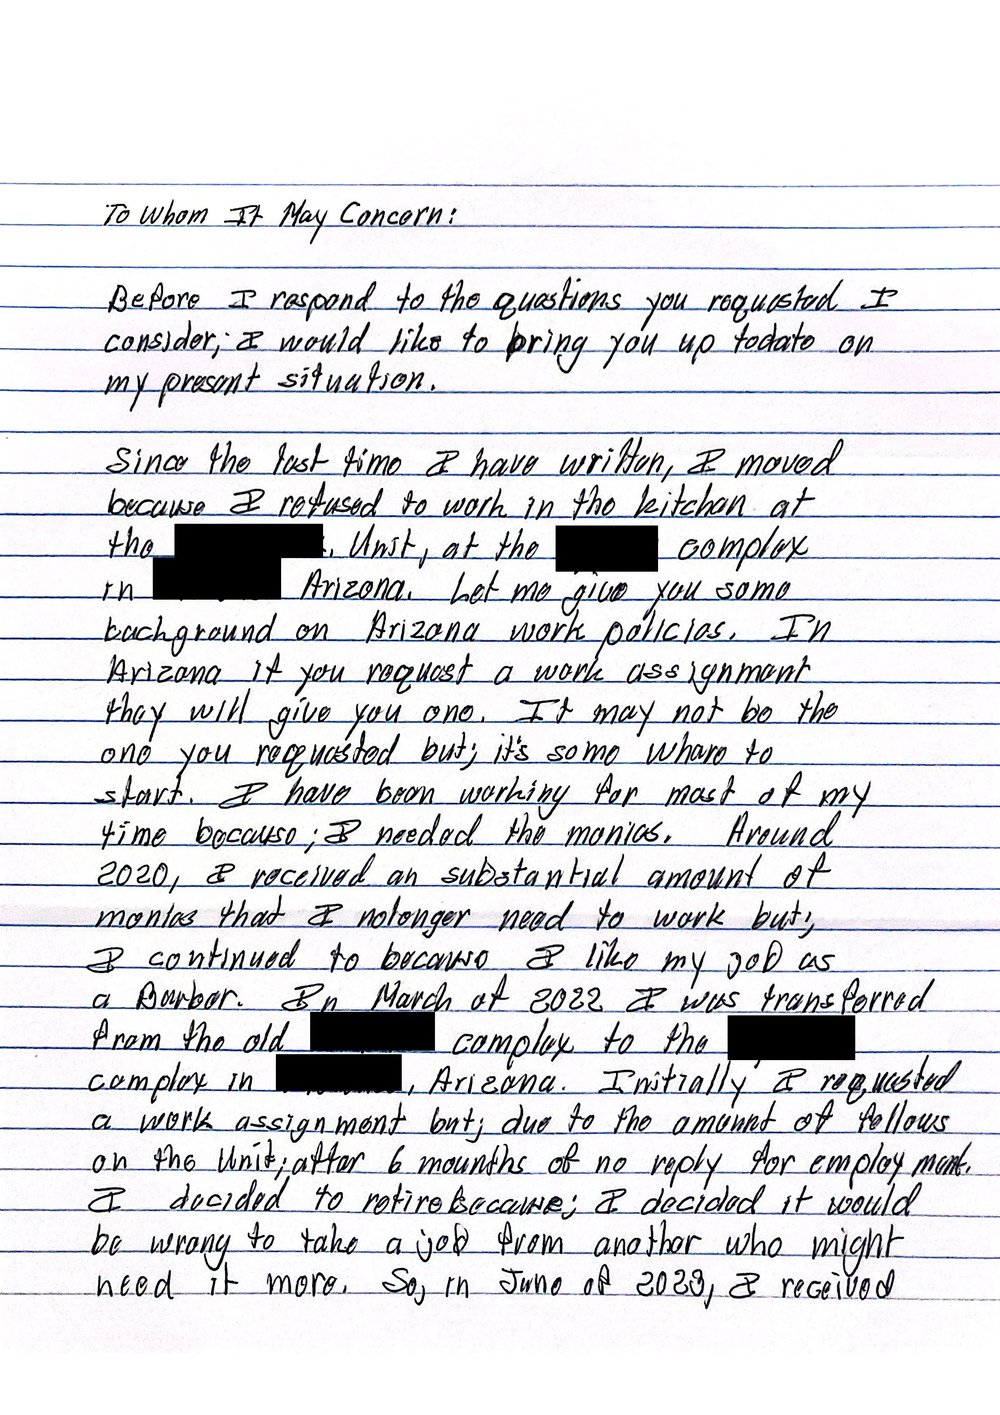 To Whom It May Concern:
Before I respond to the questions you requested I
consider; I would like to bring you up todate on
my present situation.
Since the last time I have written, I moved
because I refused to work in the kitchen at
the . Unit, at the complex
in Arizona. Let me give you some
background on Arizona work policies. In
Arizona if you request a work assignment
they will give you one. It may not be the
one you requested but; it's some where to
start. I have been working for most of my
time because; I needed the monies. Around
2020, I received an substantial amount of
monies that I nolonger need to work but;
I continued to because I like my job as
a Barber. In March of 2022 I was transferred
from the old complex to the
complex in , Arizona. Initially I requested
a work assignment but; due to the amount of fellows
on the Unit; after 6 mounths of no reply for employment.
I decided to retire because; I decided it would
be wrong to take a job from another who might
need it more. So, in June of 2023, I received